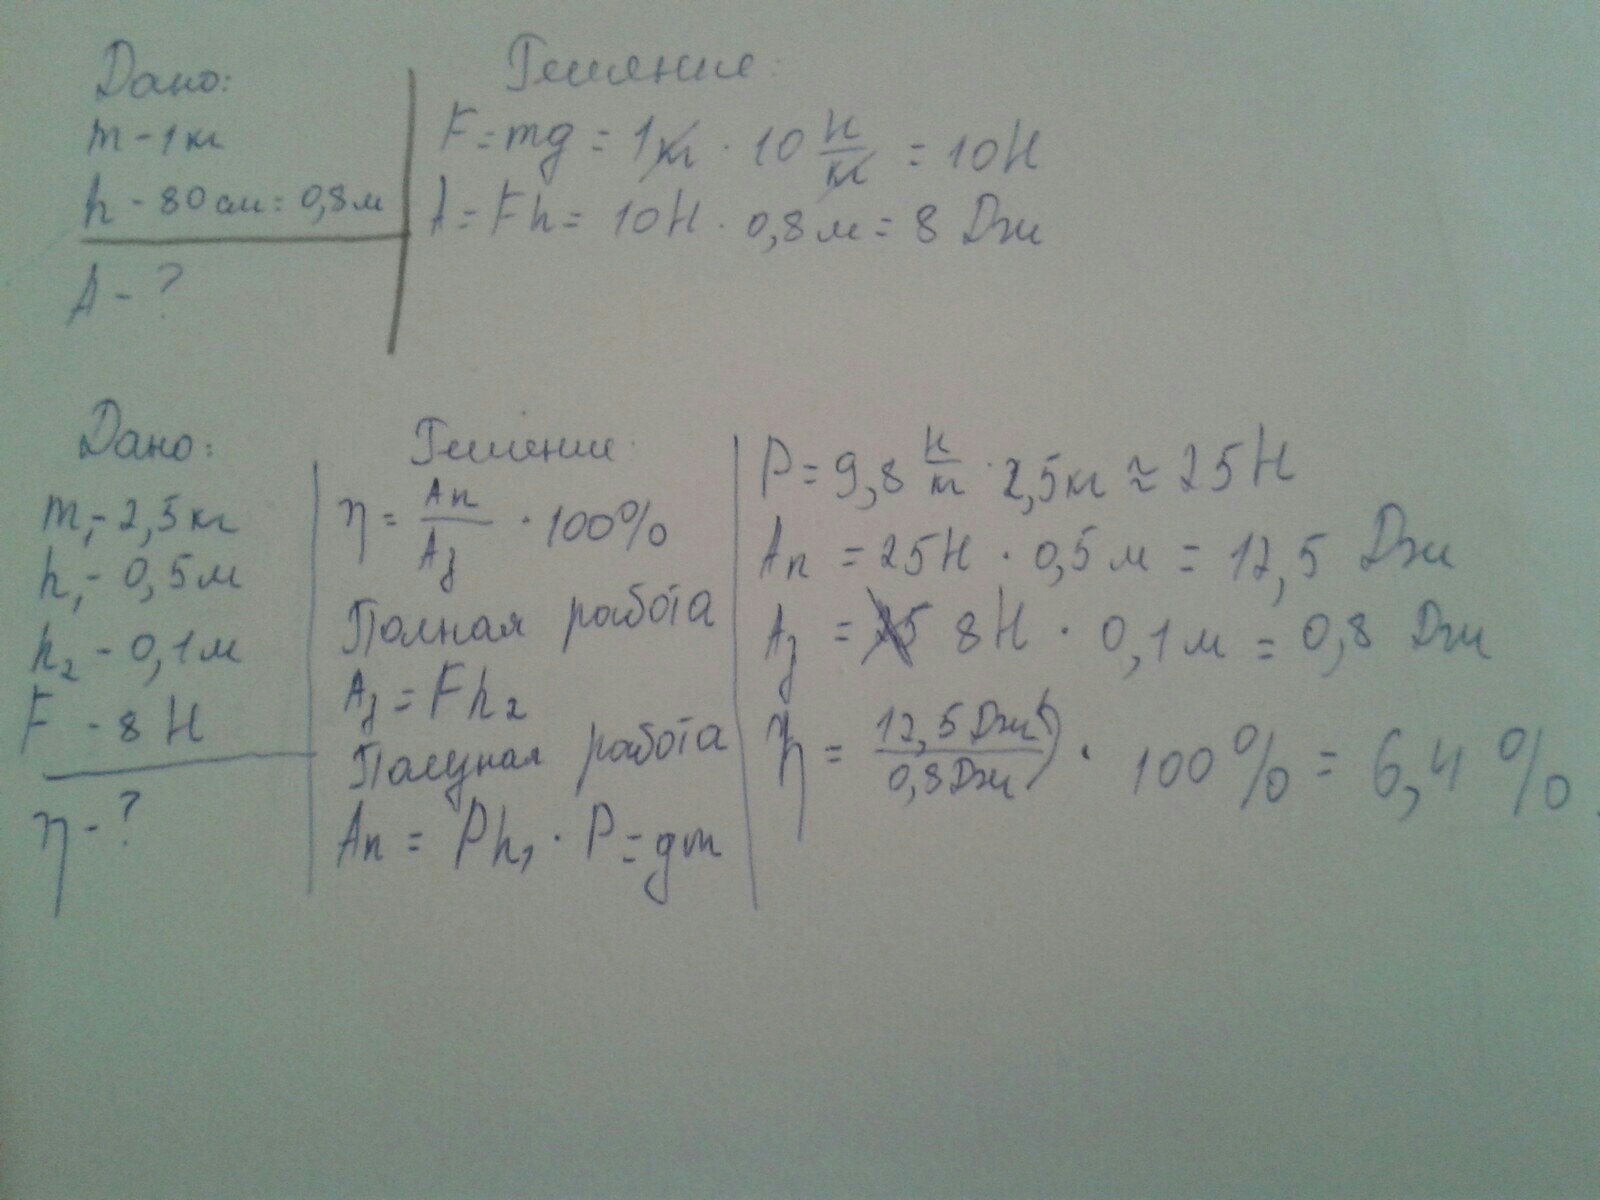 Дано:
m - 1 кг
h - 80 см = 0,8 м
A - ?
Решение:
F = mg = 1 кг · 10 Н/кг = 10 Н
A = Fh = 10 Н · 0,8 м = 8 Дж
Дано:
m₁ - 2,5 кг
h₁ - 0,5 м
h₂ - 0,1 м
F - 8 Н
η - ?
Решение:
η = Aп/Aз · 100%
Полная работа
Aз = Fh₂
Полезная работа
Aп = Ph₁. P = gm
P = 9,8 Н/кг · 2,5 кг ≈ 25 Н
Aп = 25 Н · 0,5 м = 12,5 Дж
Aз = 8 Н · 0,1 м = 0,8 Дж
η = 12,5 Дж / 0,8 Дж · 100% = 6,4 %